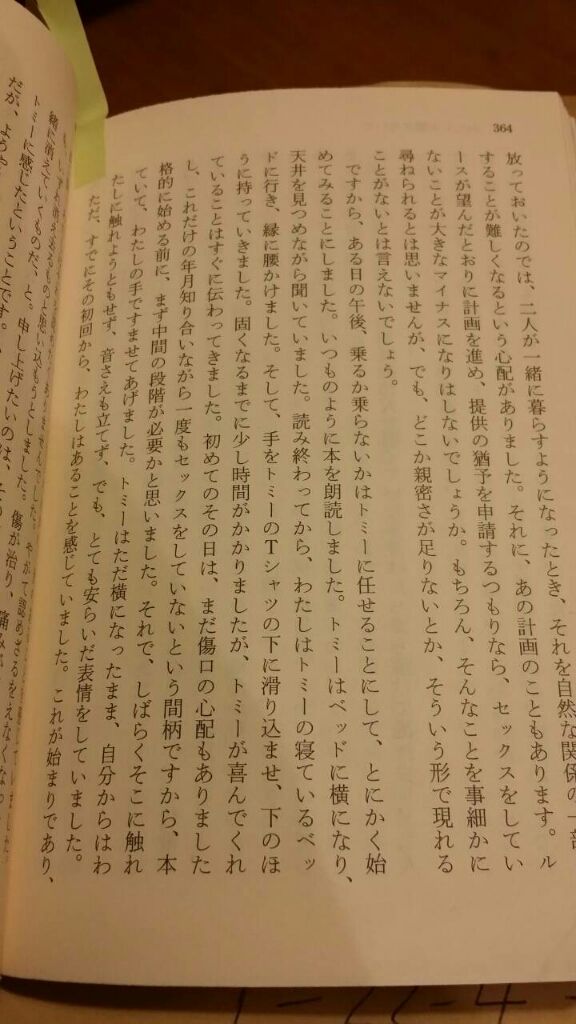 364
放っておいたのでは、二人が一緒に暮らすようになったとき、それを自然な関係の一部
することが難しくなるという心配がありました。それに、あの計画のこともあります。ル
ースが望んだとおりに計画を進め、提供の猶予を申請するつもりなら、セックスをしてい
ないことが大きなマイナスになりはしないでしょうか。もちろん、そんなことを事細かに
尋ねられるとは思いませんが、でも、どこか親密さが足りないとか、そういう形で現れる
ことがないとは言えないでしょう。
ですから、ある日の午後、乗るか乗らないかはトミーに任せることにして、とにかく始
めてみることにしました。いつものように本を朗読しました。トミーはベッドに横になり、
天井を見つめながら聞いていました。読み終わってから、わたしはトミーの寝ているベッ
ドに行き、縁に腰かけました。そして、手をトミーのTシャツの下に滑り込ませ、下のほ
うに持っていきました。固くなるまでに少し時間がかかりましたが、トミーが喜んでくれ
ていることはすぐに伝わってきました。初めてのその日は、まだ傷口の心配もありました
し、これだけの年月知り合いながら一度もセックスをしていないという間柄ですから、本
格的に始める前に、まず中間の段階が必要かと思いました。それで、しばらくそこに触れ
ていて、わたしの手ですませてあげました。トミーはただ横になったまま、自分からはわ
たしに触れようともせず、音さえも立てず、でも、とても安らいだ表情をしていました。
ただ、すでにその初回から、わたしはあることを感じていました。これが始まりであり、
緒に消えていくものだ、と。申し上げたいのは、
トミーに感じたということです。傷が治り、痛みが
だが、ようや